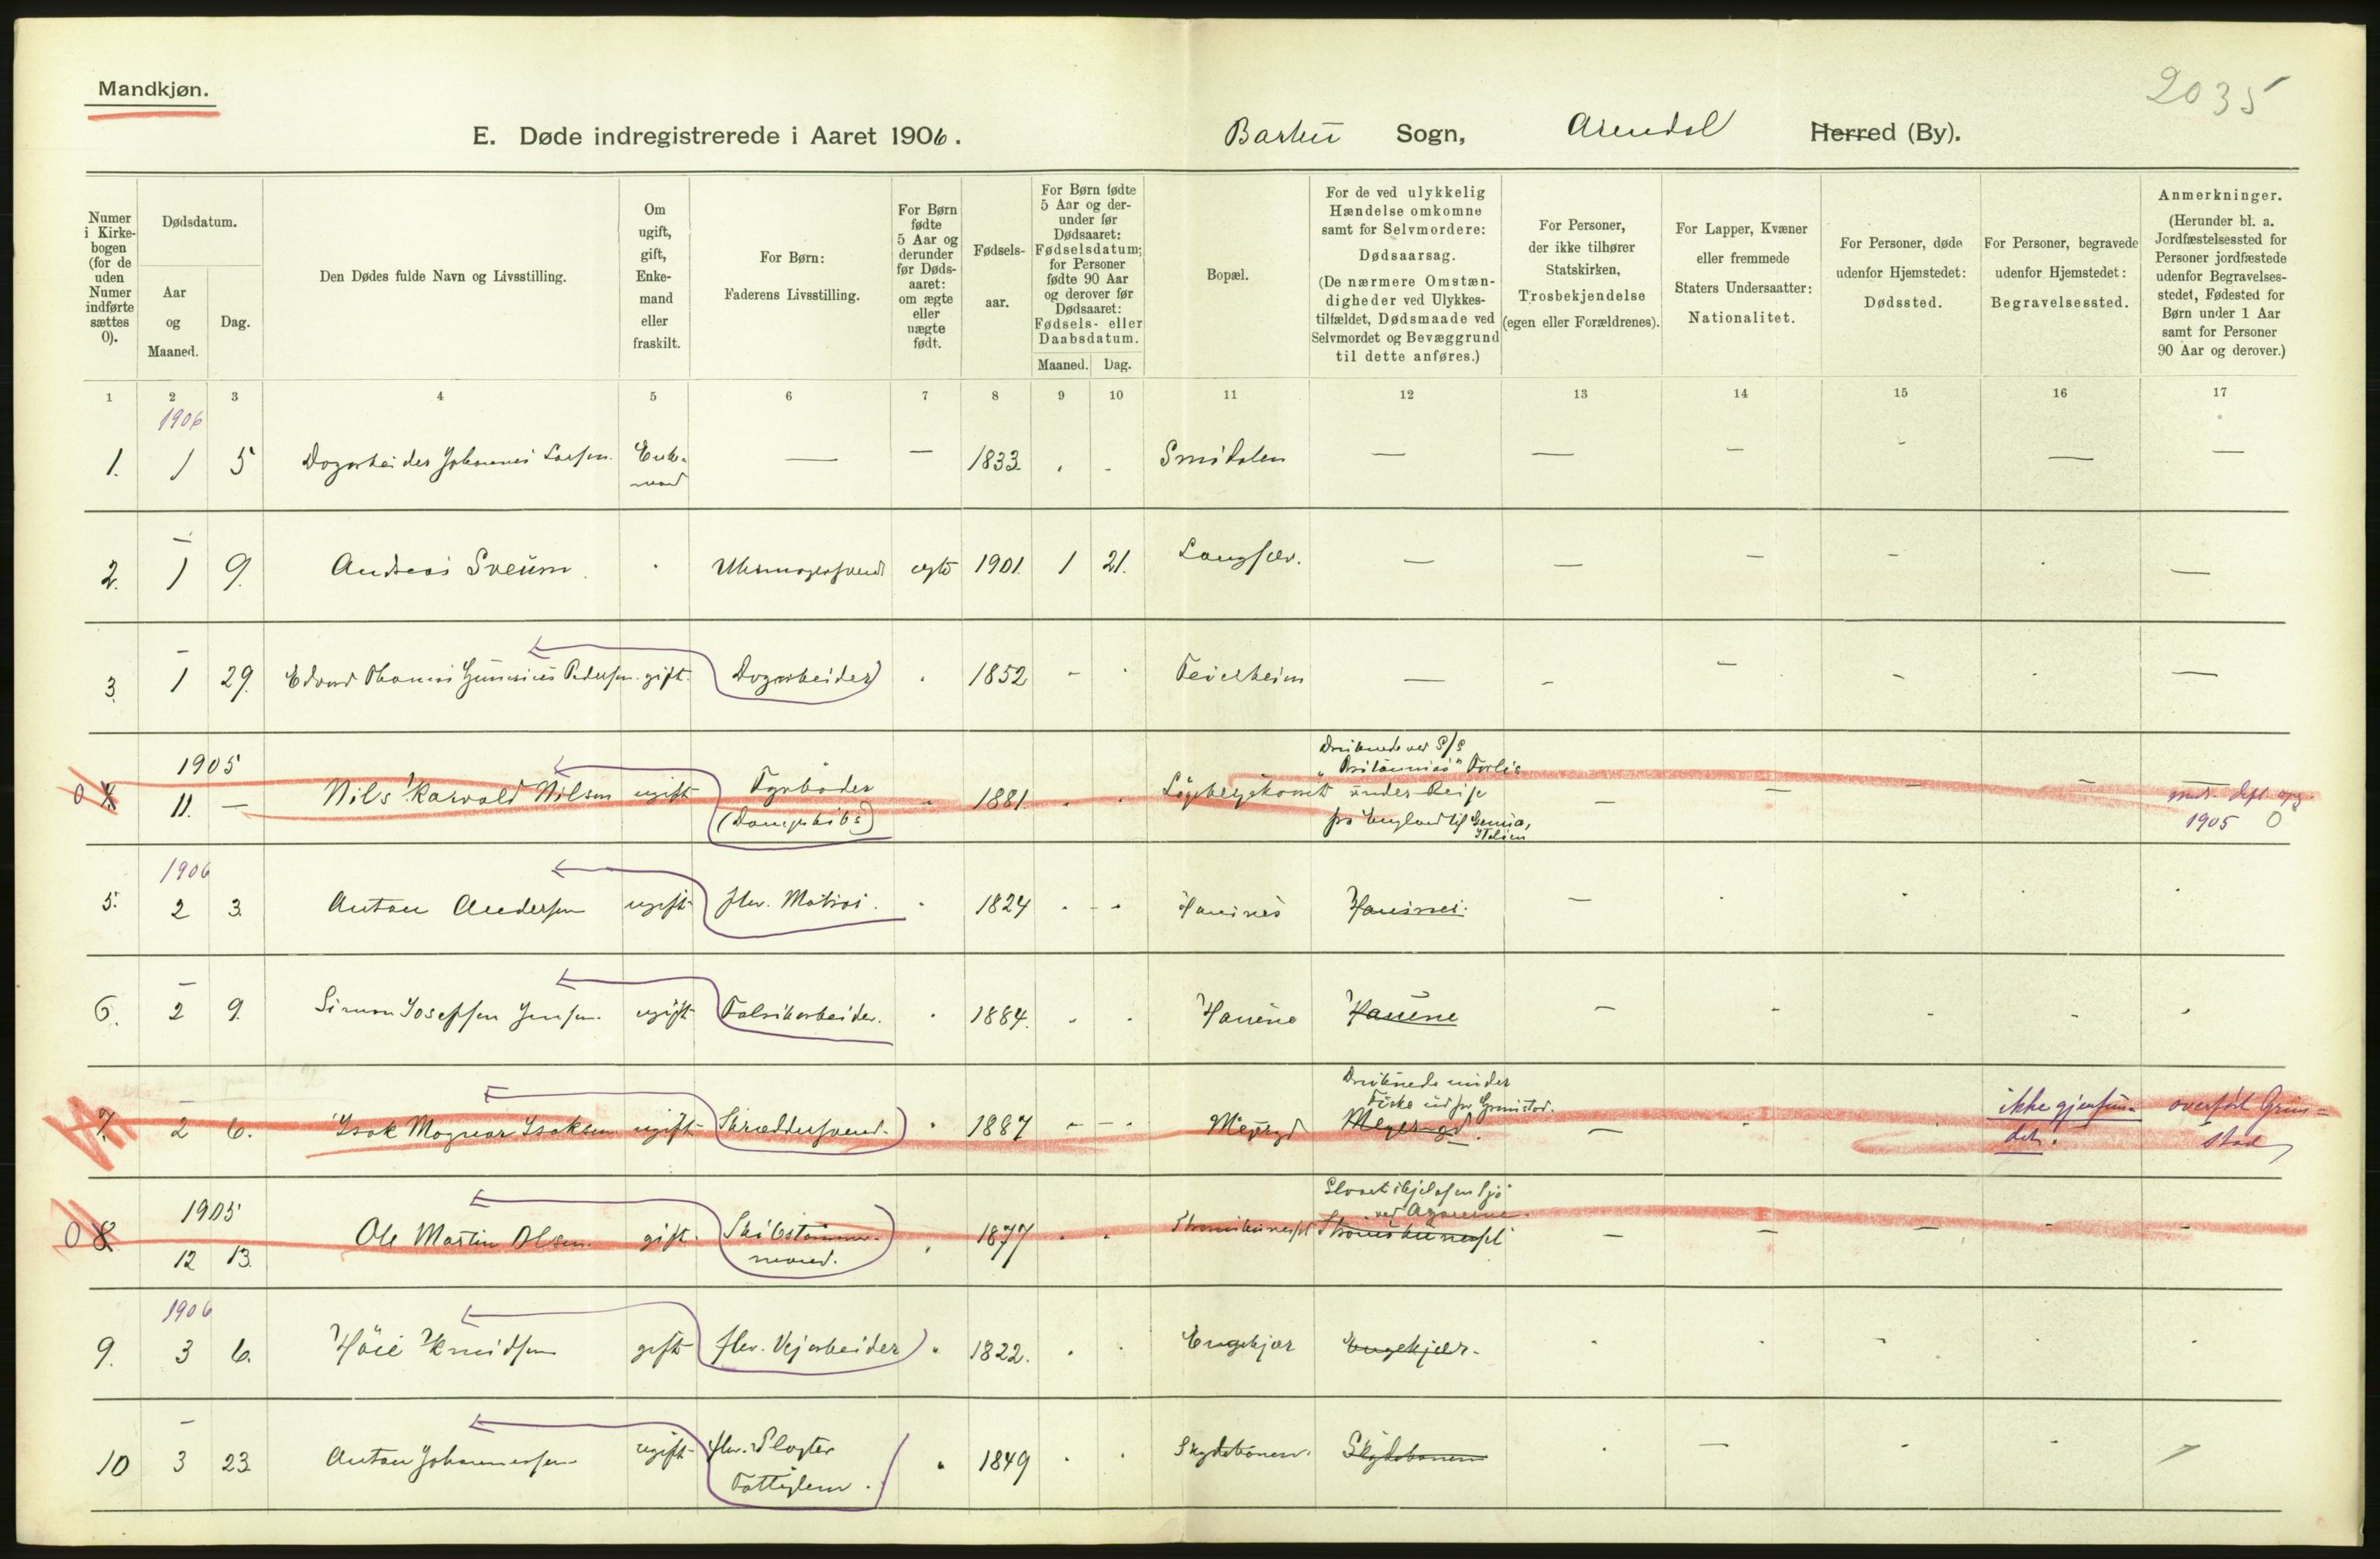 Mandkjøn.
2035
E. Døde indregistrerede i Aaret 1906. Barbu Sogn, Arendal Herred (By).
Numer i Kirkebogen (for de uden Numer indførte sættes 0).
Dødsdatum.
Aar og Maaned.
Dag.
Den Dødes fulde Navn og Livsstilling.
Om ugift, gift, Enkemand eller fraskilt.
For Børn: Faderens Livsstilling.
For Børn fødte 5 Aar og derunder før Dødsaaret: om ægte eller uægte født.
Fødselsaar.
For Børn fødte 5 Aar og derunder før Dødsaaret: Fødselsdatum; for Personer fødte 90 Aar og derover før Dødsaaret: Fødsels- eller Daabsdatum.
Maaned. Dag.
Bopæl.
For de ved ulykkelig Hændelse omkomne samt for Selvmordere: Dødsaarsag. (De nærmere Omstændigheder ved Ulykkestilfældet, Dødsmaade ved Selvmordet og Bevæggrund til dette anføres.)
For Personer, der ikke tilhører Statskirken, Trosbekjendelse (egen eller Forældrenes).
For Lapper, Kvæner eller fremmede Staters Undersaatter: Nationalitet.
For Personer, døde udenfor Hjemstedet: Dødssted.
For Personer, begravede udenfor Hjemstedet: Begravelsessted.
Anmerkninger. (Herunder bl. a. Jordfæstelsessted for Personer jordfæstede udenfor Begravelsesstedet, Fødested for Børn under 1 Aar samt for Personer 90 Aar og derover.)
1 2 3 4 5 6 7 8 9 10 11 12 13 14 15 16 17
1906
1. 1 5 Dagarbeider Johannes Larsen. Enkemand — — 1833 . . Smidalen — — — - — —
2. 1 9. Andreas Sveum . Uhrmagersvend ægte 1901. 1 21. Langsæv. — — — - . —
3 1 29. Edvard Thomas Pedersen. gift. Dagarbeider . 1852 - . — - — - . —
1905
0 4 11. — Nils Harald Nilsen ugift Fyrbøder (Dampskibs) 1881. . . Druknede ved S/S "Britannias" Forlis under Reise fra England til Genua, Italien — — — — 1905 0
1906
5. 2 3. Anton Andersen ugift fhv. Matros. . 1824 . - . — . . . .
6. 2 9. Simon Josefsen Jensen. ugift Fabrikarbeider. . 1884. . . Hauene Hauene — . . . .
7. 2 6. Isak Magnar Isaksen ugift Skræddersvend. . 1887 - - . Druknede under Fiske ud for Grimstad. — . . ikke gjenfunden. overført Grimstad
1905
0 8 12 13. Ole Martin Olsen. gift. Skibstømmermand. . 1877 . . Slaaet ihjel paa Sjø ved Azorerne. — — — - -
1906
9. 3 6. Høie Knudsen gift fhv. Vejarbeider . 1822. . . Engekjær Engekjær. . . . . .
10 3 23. Anton Johannessen ugift fhv. Slagter Fattiglem. . 1849 . . Skydebanen. Skydebanen . — . .